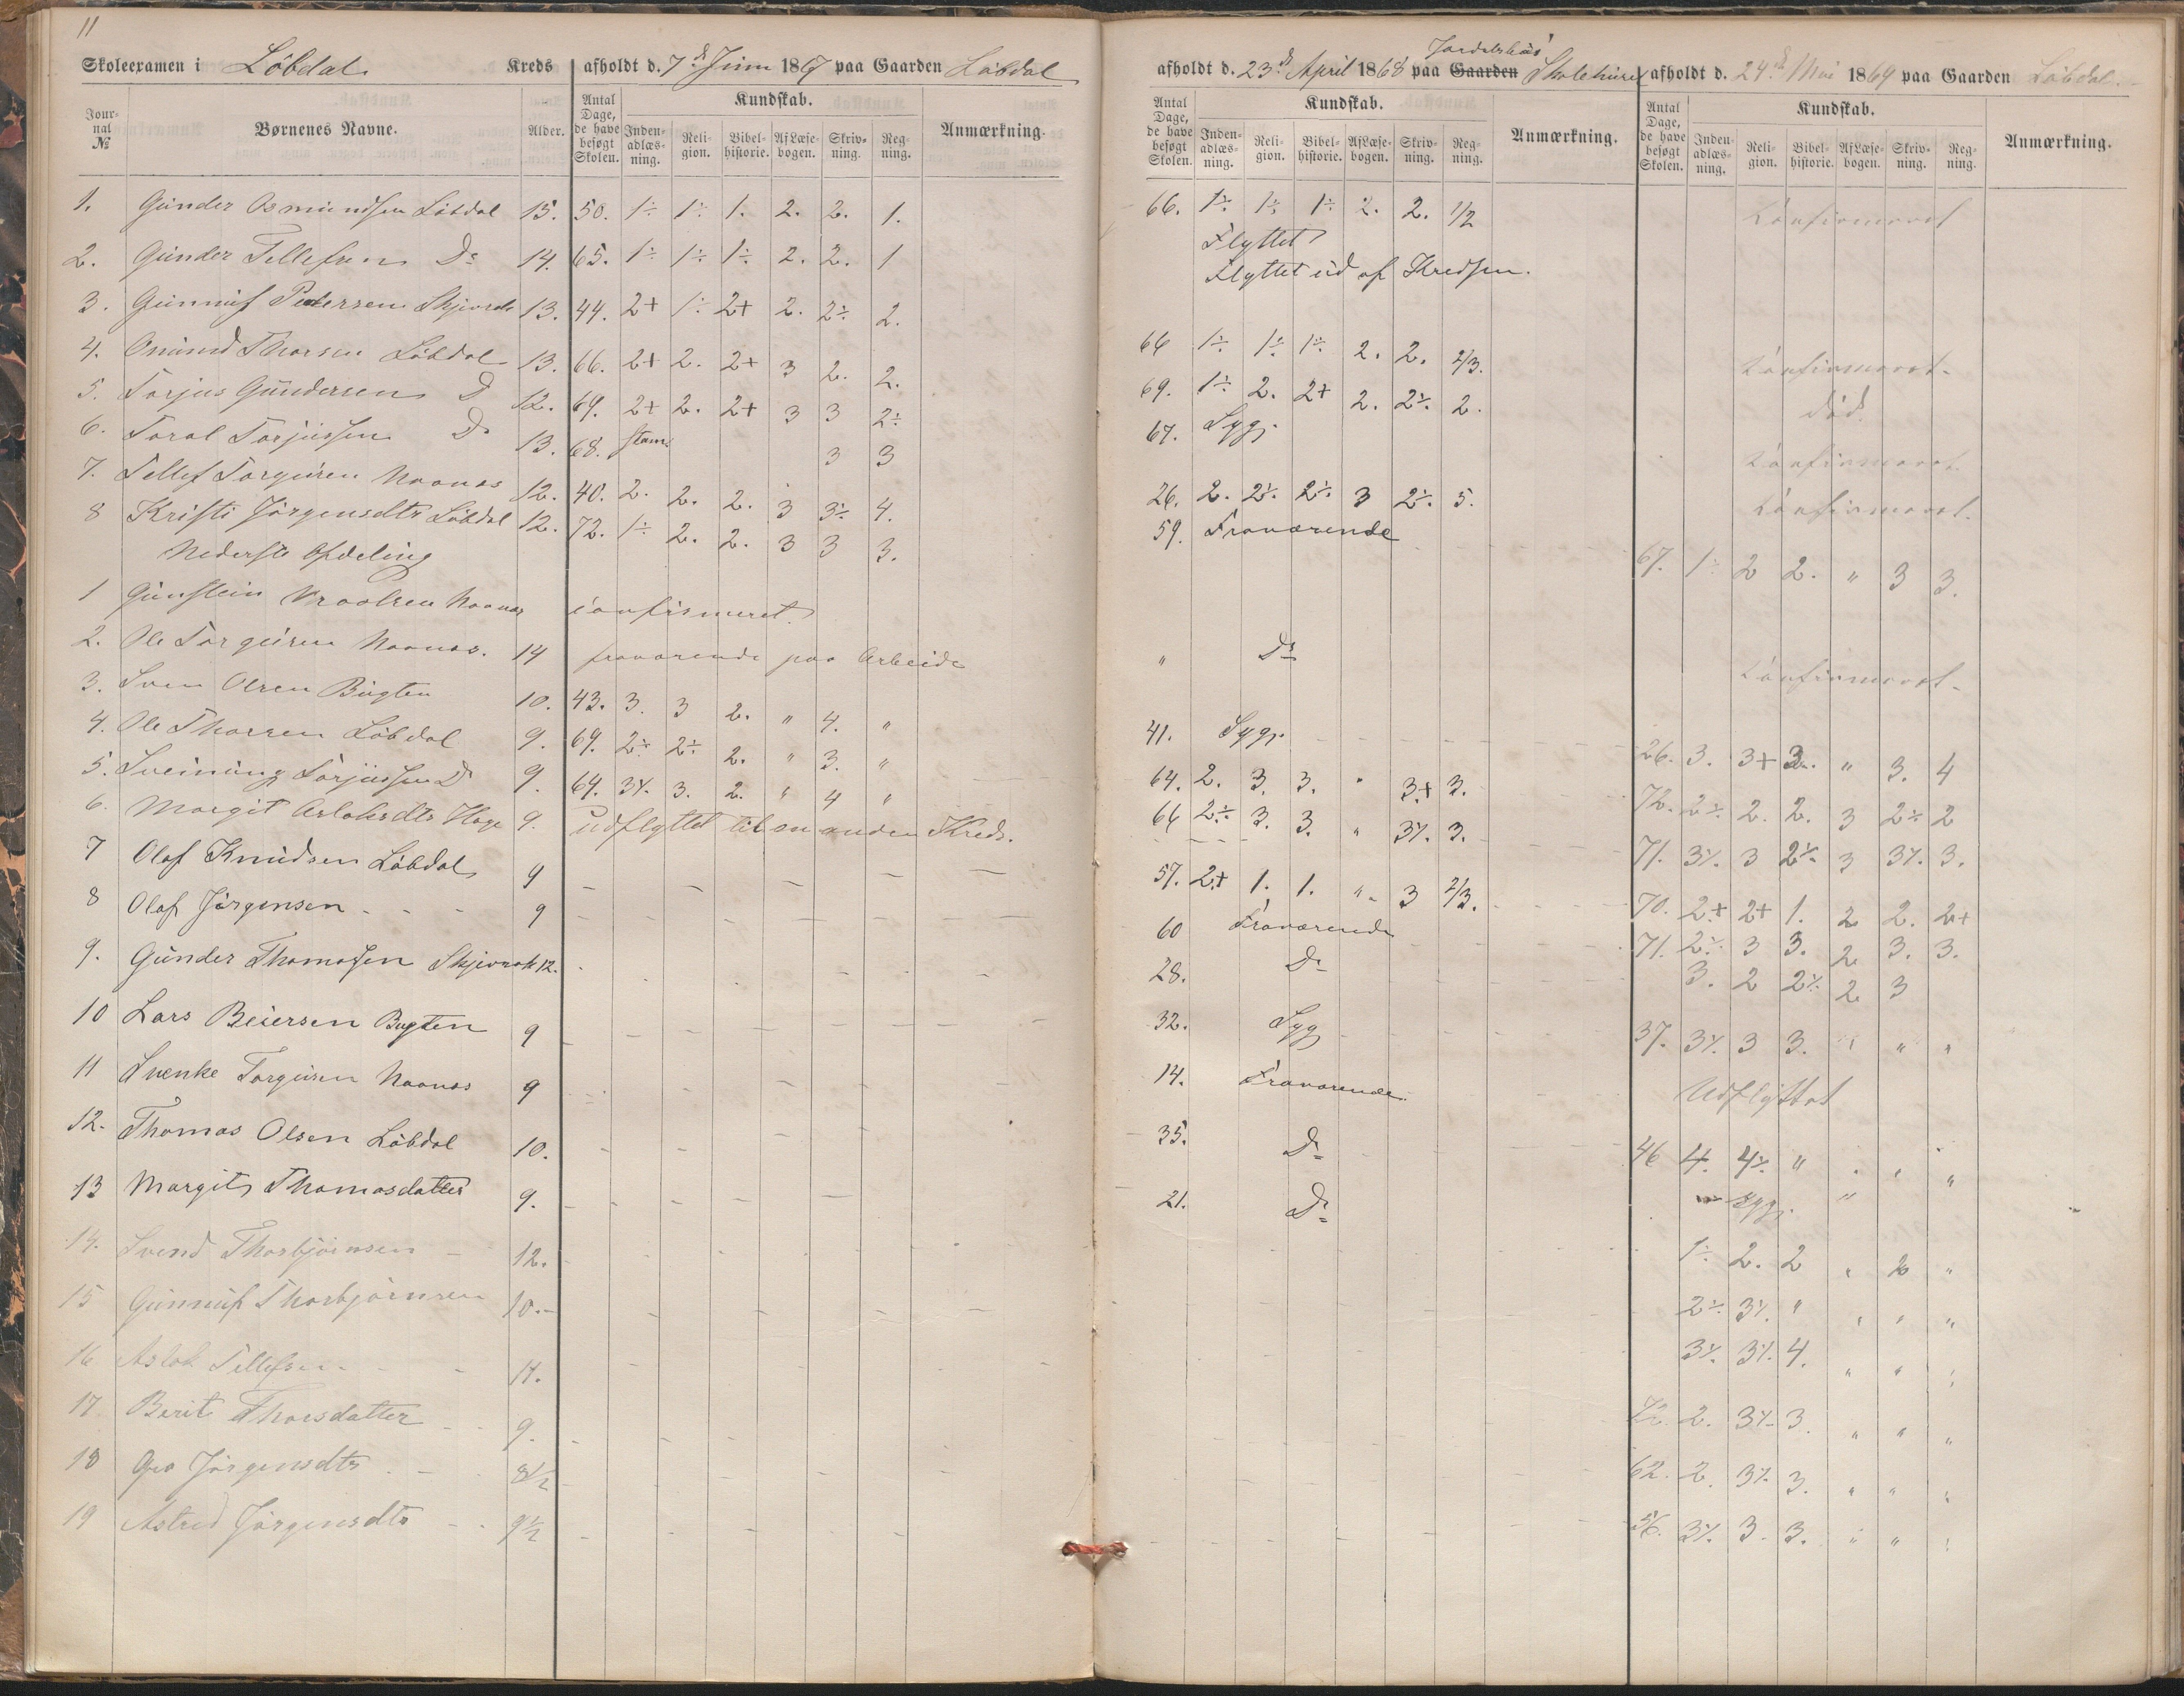 11
Skoleexamen i Löbdal Kreds afholdt d. 7de Juni 1867 paa Gaarden Löbdal
Jour-nal № Børnenes Navne. Alder. Antal Dage, de have besøgt Skolen. Kundskab. Inden-adlæs-ning. Reli-gion. Bibel-historie. Af Læse-bogen. Skriv-ning. Reg-ning. Anmærkning.
1. Gunder Osmundsen Löbdal 15. 50. 1÷ 1÷ 1. 2. 2. 1.
2. Gunder Tellefsen Do 14. 65. 1÷ 1÷ 1÷ 2. 2. 1
3. Gunnuf Pedersen 13. 44. 2+ 1÷ 2+ 2. 2÷ 2.
4. Thorsen Löbdal 13. 66. 2+ 2. 2+ 3 2. 2.
5. Torjus Gundersen D 12. 69. 2+ 2. 2+ 3 3 2÷
6. Torjussen Do 13. 68. stam. 3 3
7. Tellef Torgusen Naanes 12. 40. 2. 2. 2. 3 3÷ 4.
8 Kristi Jörgensdtr Löbdal 12. 72. 1÷ 2. 2. 3 3 3.
Nederste Afdeling
1 Gunstein Naanes confirmeret.
2. Ole Torgusen Naanes. 14 fraværende paa Arbeide
3. Sven Olsen Bugten 10. 43. 3. 3 2. " 4. "
4. Ole Thorsen Löbdal 9. 69. 2÷ 2÷ 2. " 3. "
5. Sveinung Torjussen D 9. 64. 3÷ 3. 2. " 4 "
6. Margit Aslaksdtr Hage 9. udflyttet til en anden Kreds.
7 Olaf Knudsen Löbdal 9
8 Olaf Jörgensen - - - 9
9. Gunder Thomassen 12.
10 Lars Beiersen Bugten 9
11 Svenke Torgusen Naanes 9
12. Thomas Olsen Löbdal 10.
13 Margit Thomasdatter 9.
14. Svend Thorbjörnsen - 12.
15 Gunnuf Thorbjörnsen 10.-
16 Aslak Tellefsen - - 11.
17 Berit Thorsdatter 9.
18 Jörgensdtr 8½
19 Astrid Jörgensdtr 9½
afholdt d. 23de April 1868 paa Gaarden Skolehuset
Antal Dage, de have besøgt Skolen. Kundskab. Inden-adlæs-ning. Reli-gion. Bibel-historie. Af Læse-bogen. Skriv-ning. Reg-ning. Anmærkning.
66. 1÷ 1÷ 1÷ 2. 2. 1/2
Flyttet
Flyttet ud af Kredsen.
66 1÷ 1÷ 1÷ 2. 2. 2/3.
69. 1÷ 2. 2+ 2. 2÷ 2.
67. Syg.
26. 2. 2÷ 2÷ 3 2÷ 5.
59. Fraværende
" Do
41. Syg.
64. 2. 3. 3. " 3+ 3.
66 2÷ 3. 3. " 3÷ 3.
57. 2+ 1. 1. " 3 2/3.
60 Fraværende
28. Do
32. Syg
14. Fraværende.
35. Do
21. Do
afholdt d. 24de Mai 1869 paa Gaarden Löbdal.
Antal Dage, de have besøgt Skolen. Kundskab. Inden-adlæs-ning. Reli-gion. Bibel-historie. Af Læse-bogen. Skriv-ning. Reg-ning. Anmærkning.
Confirmeret
Confirmeret.
död.
Confirmeret.
Confirmeret.
67. 1÷ 2 2. " 3 3.
Confirmeret.
26. 3. 3+ 3. " 3. 4
72. 2÷ 2. 2. 3 2÷ 2
71. 3÷ 3 2÷ 3 3÷ 3.
70. 2+ 2+ 1. 2 2. 2+
71. 2÷ 3 3. 2 3. 3.
3. 2 2÷ 2 3
37. 3÷ 3 3. " " "
Udflyttet
46 4. 4÷ " " " "
Syg. "
1÷ 2. 2 " 2 "
2÷ 3÷ " " " "
3÷ 3÷ 4. " " "
72. 2. 3÷ 3. " " "
62. 2. 3÷ 3. " " "
56. 3÷ 3. 3. " " "